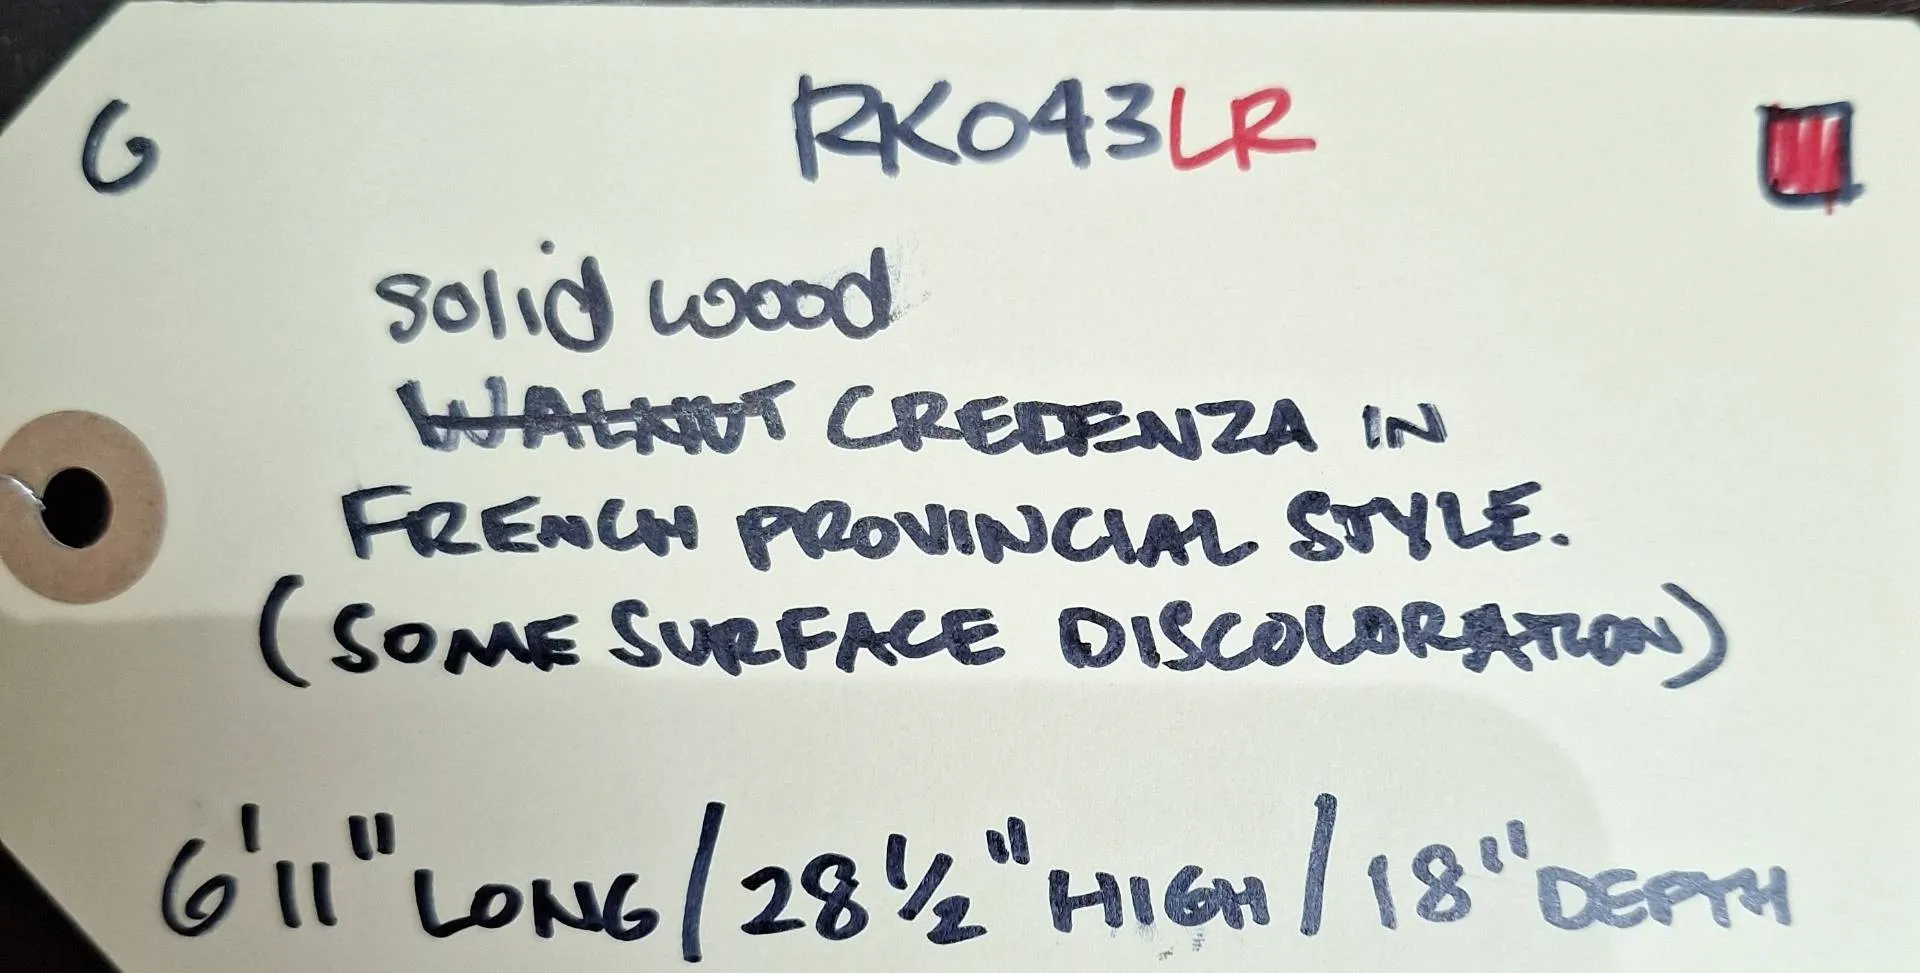 G RK043LR
solid wood
WALNUT CREDENZA IN
FRENCH PROVINCIAL STYLE.
(SOME SURFACE DISCOLORATION)
6'11" LONG / 28 1/2" HIGH / 18" DEPTH